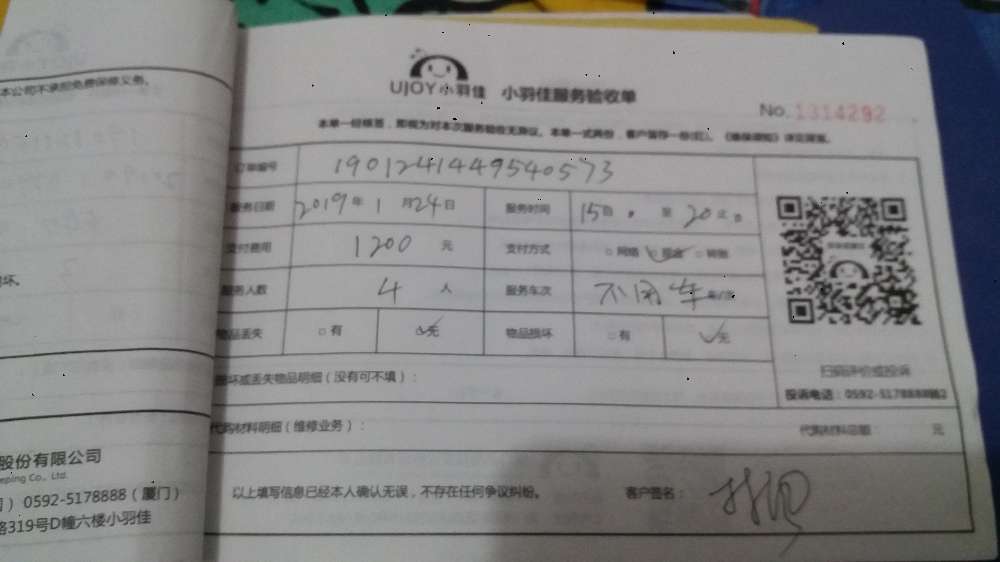 本公司不承担免费保修义务。
坏。
股份有限公司
eping Co., Ltd.
0592-5178888（厦门）
路319号D幢六楼小羽佳
UJOY小羽佳 小羽佳服务验收单
No. 1314292
本单一经核签，即视为对本次服务验收无异议。本单一式两份，客户留存一份(红)。《维保须知》详见背面。
订单编号 1901241449540573
服务日期 2019年1月24日 服务时间 15 至 20止
支付费用 1200元 支付方式 □网络 ☑现金 □转账
服务人数 4人 服务车次 不用车
物品丢失 □有 ☑无 物品损坏 □有 ☑无
损坏或丢失物品明细（没有可不填）：
代购材料明细（维修业务）： 代购材料总额： 元
扫码评价或投诉
投诉电话：0592-5178888转2
以上填写信息已经本人确认无误，不存在任何争议纠纷。 客户签名：